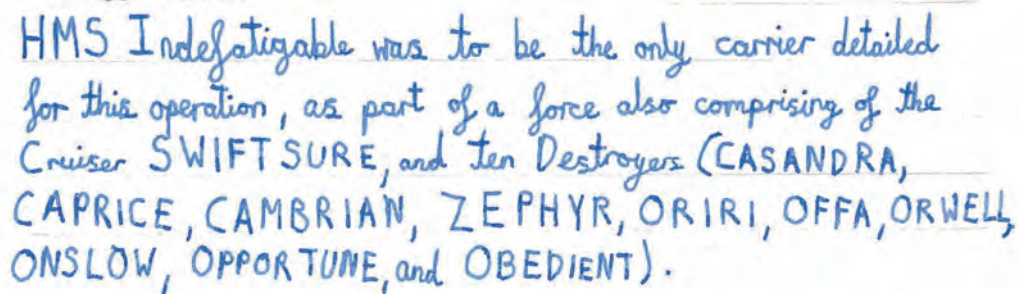 HMS Indefatigable was to be the only carrier detailed
for this operation, as part of a force also comprising of the
Cruiser SWIFTSURE, and ten Destroyers (CASANDRA,
CAPRICE, CAMBRIAN, ZEPHYR, ORIRI, OFFA, ORWELL,
ONSLOW, OPPORTUNE, and OBEDIENT).